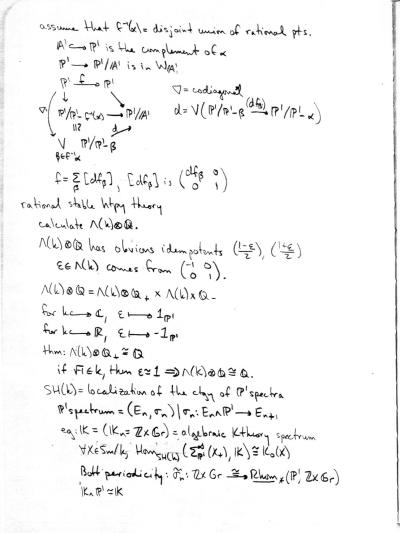 assume that f⁻¹(α) = disjoint union of rational pts.
A¹ ↪ P¹ is the complement of α
P¹ → P¹/A¹ is in W_A¹
P¹ —f→ P¹
∇ = codiagonal
P¹/P¹-f⁻¹(α) → P¹/A¹
d = V(P¹/P¹-β —(df_β)→ P¹/P¹-α)
V P¹/P¹-β
β∈f⁻¹α
f = Σ_β [df_β], [df_β] is (df_β 0 / 0 1)
rational stable htpy theory
calculate Λ(k)⊗Q.
Λ(k)⊗Q has obvious idempotents (1-ε/2), (1+ε/2)
ε∈Λ(k) comes from (-1 0 / 0 1).
Λ(k)⊗Q = Λ(k)⊗Q₊ × Λ(k)×Q₋
for k↪C, ε ↦ 1_P¹
for k↪R, ε ↦ -1_P¹
thm: Λ(k)⊗Q₊ ≅ Q
if √-1∈k, then ε≃1 ⇒ Λ(k)⊗Q ≅ Q.
SH(k) = localization of the ctgy of P¹spectra
P¹spectrum = (Eₙ, σₙ) | σₙ: Eₙ∧P¹ → Eₙ₊₁
eg: K = (Kₙ = Z×Gr) = algebraic Ktheory spectrum
∀X∈Sm/k, Hom_SH(k)(Σ^∞_P¹(X₊), K) ≅ K₀(X)
Bott periodicity: σ̃ₙ: Z×Gr ≅→ Rhom_*(P¹, Z×Gr)
K∧P¹ ≃ K